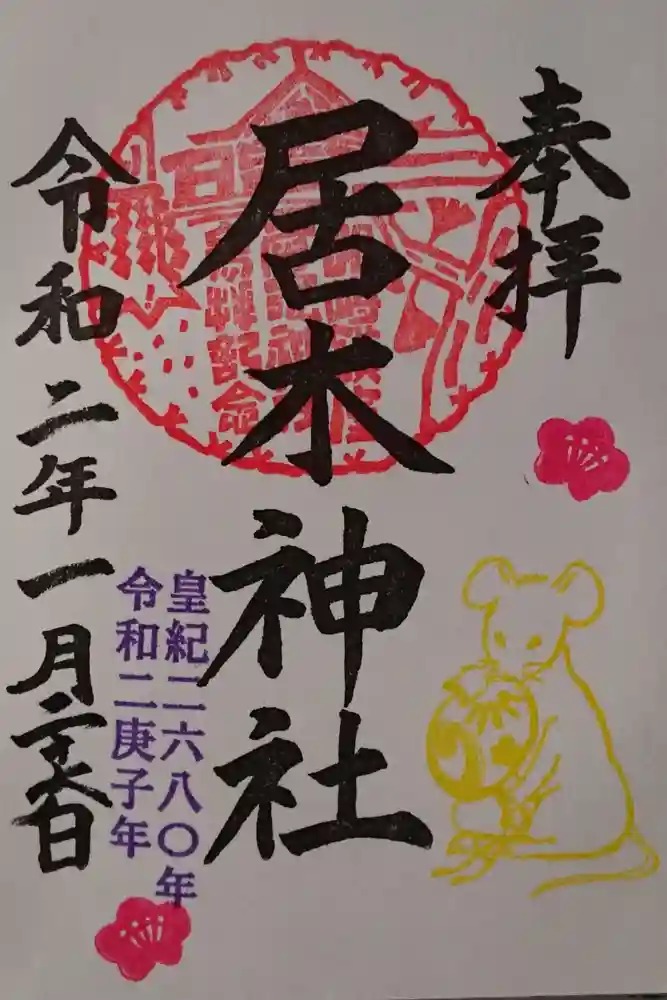 奉拝
居木神社
参拝記念
皇紀二六八〇年
令和二庚子年
令和二年一月二十六日